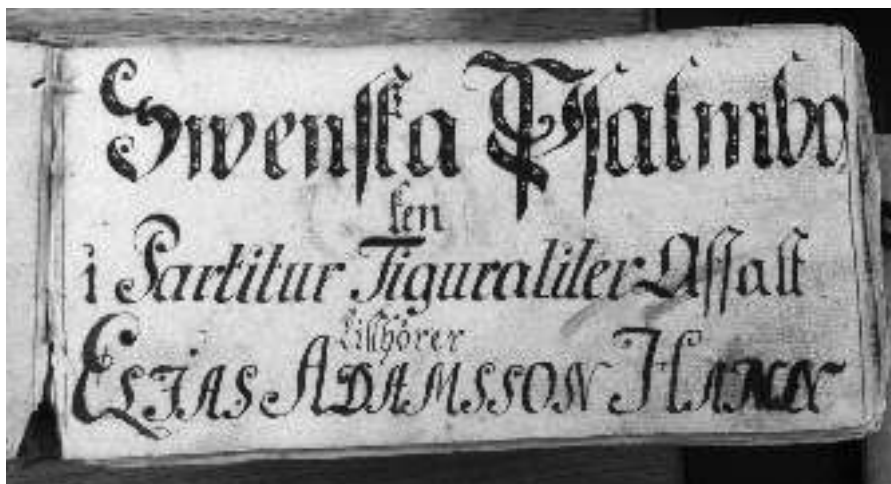 Swenska Psalmbo
ken
i Partitur Figuraliter Affatt
tillhörer
ELIAS ADAMSSON HAMIN